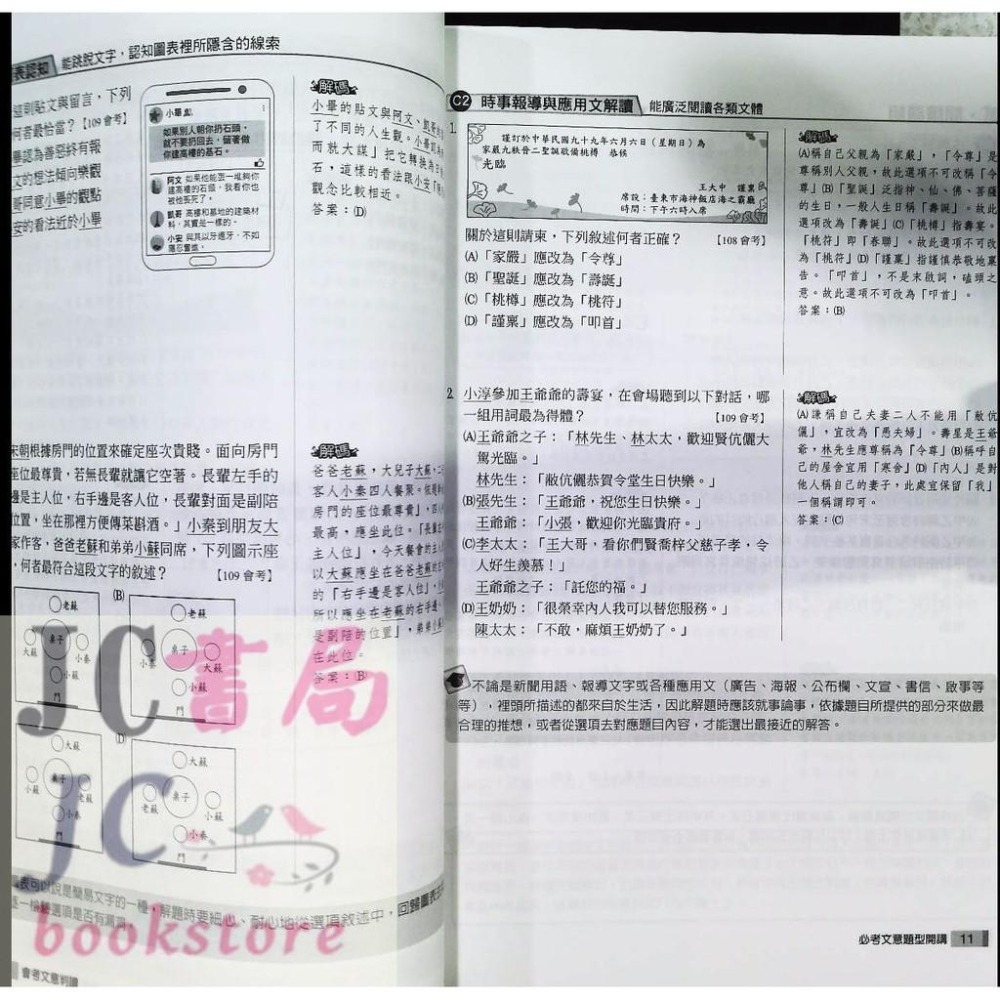 表認知 能跳脫文字，認知圖表裡所隱含的線索
這則貼文與留言，下列
何者最恰當？【109會考】
畢認為善惡終有報
文的想法傾向樂觀
哥同意小畢的觀點
安的看法近於小畢
小畢
如果別人朝你扔石頭，
就不要扔回去，留著做
你建高樓的基石。
阿文 如果他能丟一堆夠你
建高樓的石頭，我看你也
被他丟死了。
凱哥 高樓和墓地的建築材
料，其實是一樣的。
小安 與其以牙還牙，不如
隱忍奮進。
解碼
小畢的貼文與阿文、凱哥
了不同的人生觀。小畢
而就大謀」把它轉換為
石，這樣的看法跟小安
觀念比較相近。
答案：(D)
宋朝根據房門的位置來確定座次貴賤。面向房門
座位最尊貴，若無長輩就讓它空著。長輩左手的
邊是主人位，右手邊是客人位，長輩對面是副陪
位置，坐在那裡方便傳菜斟酒。」小秦到朋友大
家作客，爸爸老蘇和弟弟小蘇同席，下列圖示座
，何者最符合這段文字的敘述？【109會考】
解碼
爸爸老蘇，大兒子大蘇，
客人小秦四人餐聚。依
房門的座位最尊貴」，
最高，應坐此位。「長輩
主人位」，今天餐會的主
以大蘇應坐在爸爸老蘇
的「右手邊是客人位」，
所以應坐在老蘇的右手邊
是副陪的位置」，弟弟
在此位。
答案：(B)
(B)
老蘇
大蘇
桌子
小秦
小蘇
門
老蘇
小秦
桌子
大蘇
小蘇
門
(D)
大蘇
小蘇
桌子
老蘇
小秦
門
大蘇
老蘇
桌子
小蘇
小秦
門
圖表可以說是簡易文字的一種，解題時要細心、耐心地從選項敘述中，回歸圖表
一檢驗選項是否有漏洞。
會考文意判讀
JC書局
JC
bookstore
C2 時事報導與應用文解讀 能廣泛閱讀各類文體
1.
謹訂於中華民國九十九年六月六日（星期日）為
家嚴九秩晉二聖誕敬備桃樽 恭候
光臨
王大中 謹稟
席設：臺東市海神飯店海之霸廳
時間：下午六時入席
關於這則請柬，下列敘述何者正確？【108會考】
(A)「家嚴」應改為「令尊」
(B)「聖誕」應改為「壽誕」
(C)「桃樽」應改為「桃符」
(D)「謹稟」應改為「叩首」
解碼
(A)稱自己父親為「家嚴」，「令尊」是
尊稱別人父親，故此選項不可改稱「令
尊」(B)「聖誕」泛指神、仙、佛、菩薩
的生日，一般人生日稱「壽誕」。故此
選項改為「壽誕」(C)「桃樽」指壽宴。
「桃符」即「春聯」。故此選項不可改
為「桃符」(D)「謹稟」指謹慎恭敬地稟
告。「叩首」，不是末啟詞，磕頭之
意。故此選項不可改為「叩首」。
答案：(B)
2 小淳參加王爺爺的壽宴，在會場聽到以下對話，哪
一組用詞最為得體？【109會考】
(A)王爺爺之子：「林先生、林太太，歡迎賢伉儷大
駕光臨。」
林先生：「敝伉儷恭賀令堂生日快樂。」
(B)張先生：「王爺爺，祝您生日快樂。」
王爺爺：「小張，歡迎你光臨貴府。」
(C)李太太：「王大哥，看你們賢喬梓父慈子孝，令
人好生羨慕！」
王爺爺之子：「託您的福。」
(D)王奶奶：「很榮幸內人我可以替您服務。」
陳太太：「不敢，麻煩王奶奶了。」
解碼
(A)謙稱自己夫妻二人不能用「敝伉
儷」，宜改為「愚夫婦」。壽星是王爺
爺，林先生應尊稱為「令尊」(B)稱呼自
己的屋舍宜用「寒舍」(D)「內人」是對
他人稱自己的妻子，此處宜保留「我」
一個稱謂即可。
答案：(C)
不論是新聞用語、報導文字或各種應用文（廣告、海報、公布欄、文宣、書信、啟事等
等），裡頭所描述的都來自於生活，因此解題時應該就事論事，依據題目所提供的部分來做最
合理的推想，或者從選項去對應題目內容，才能選出最接近的解答。
必考文意題型開講 11